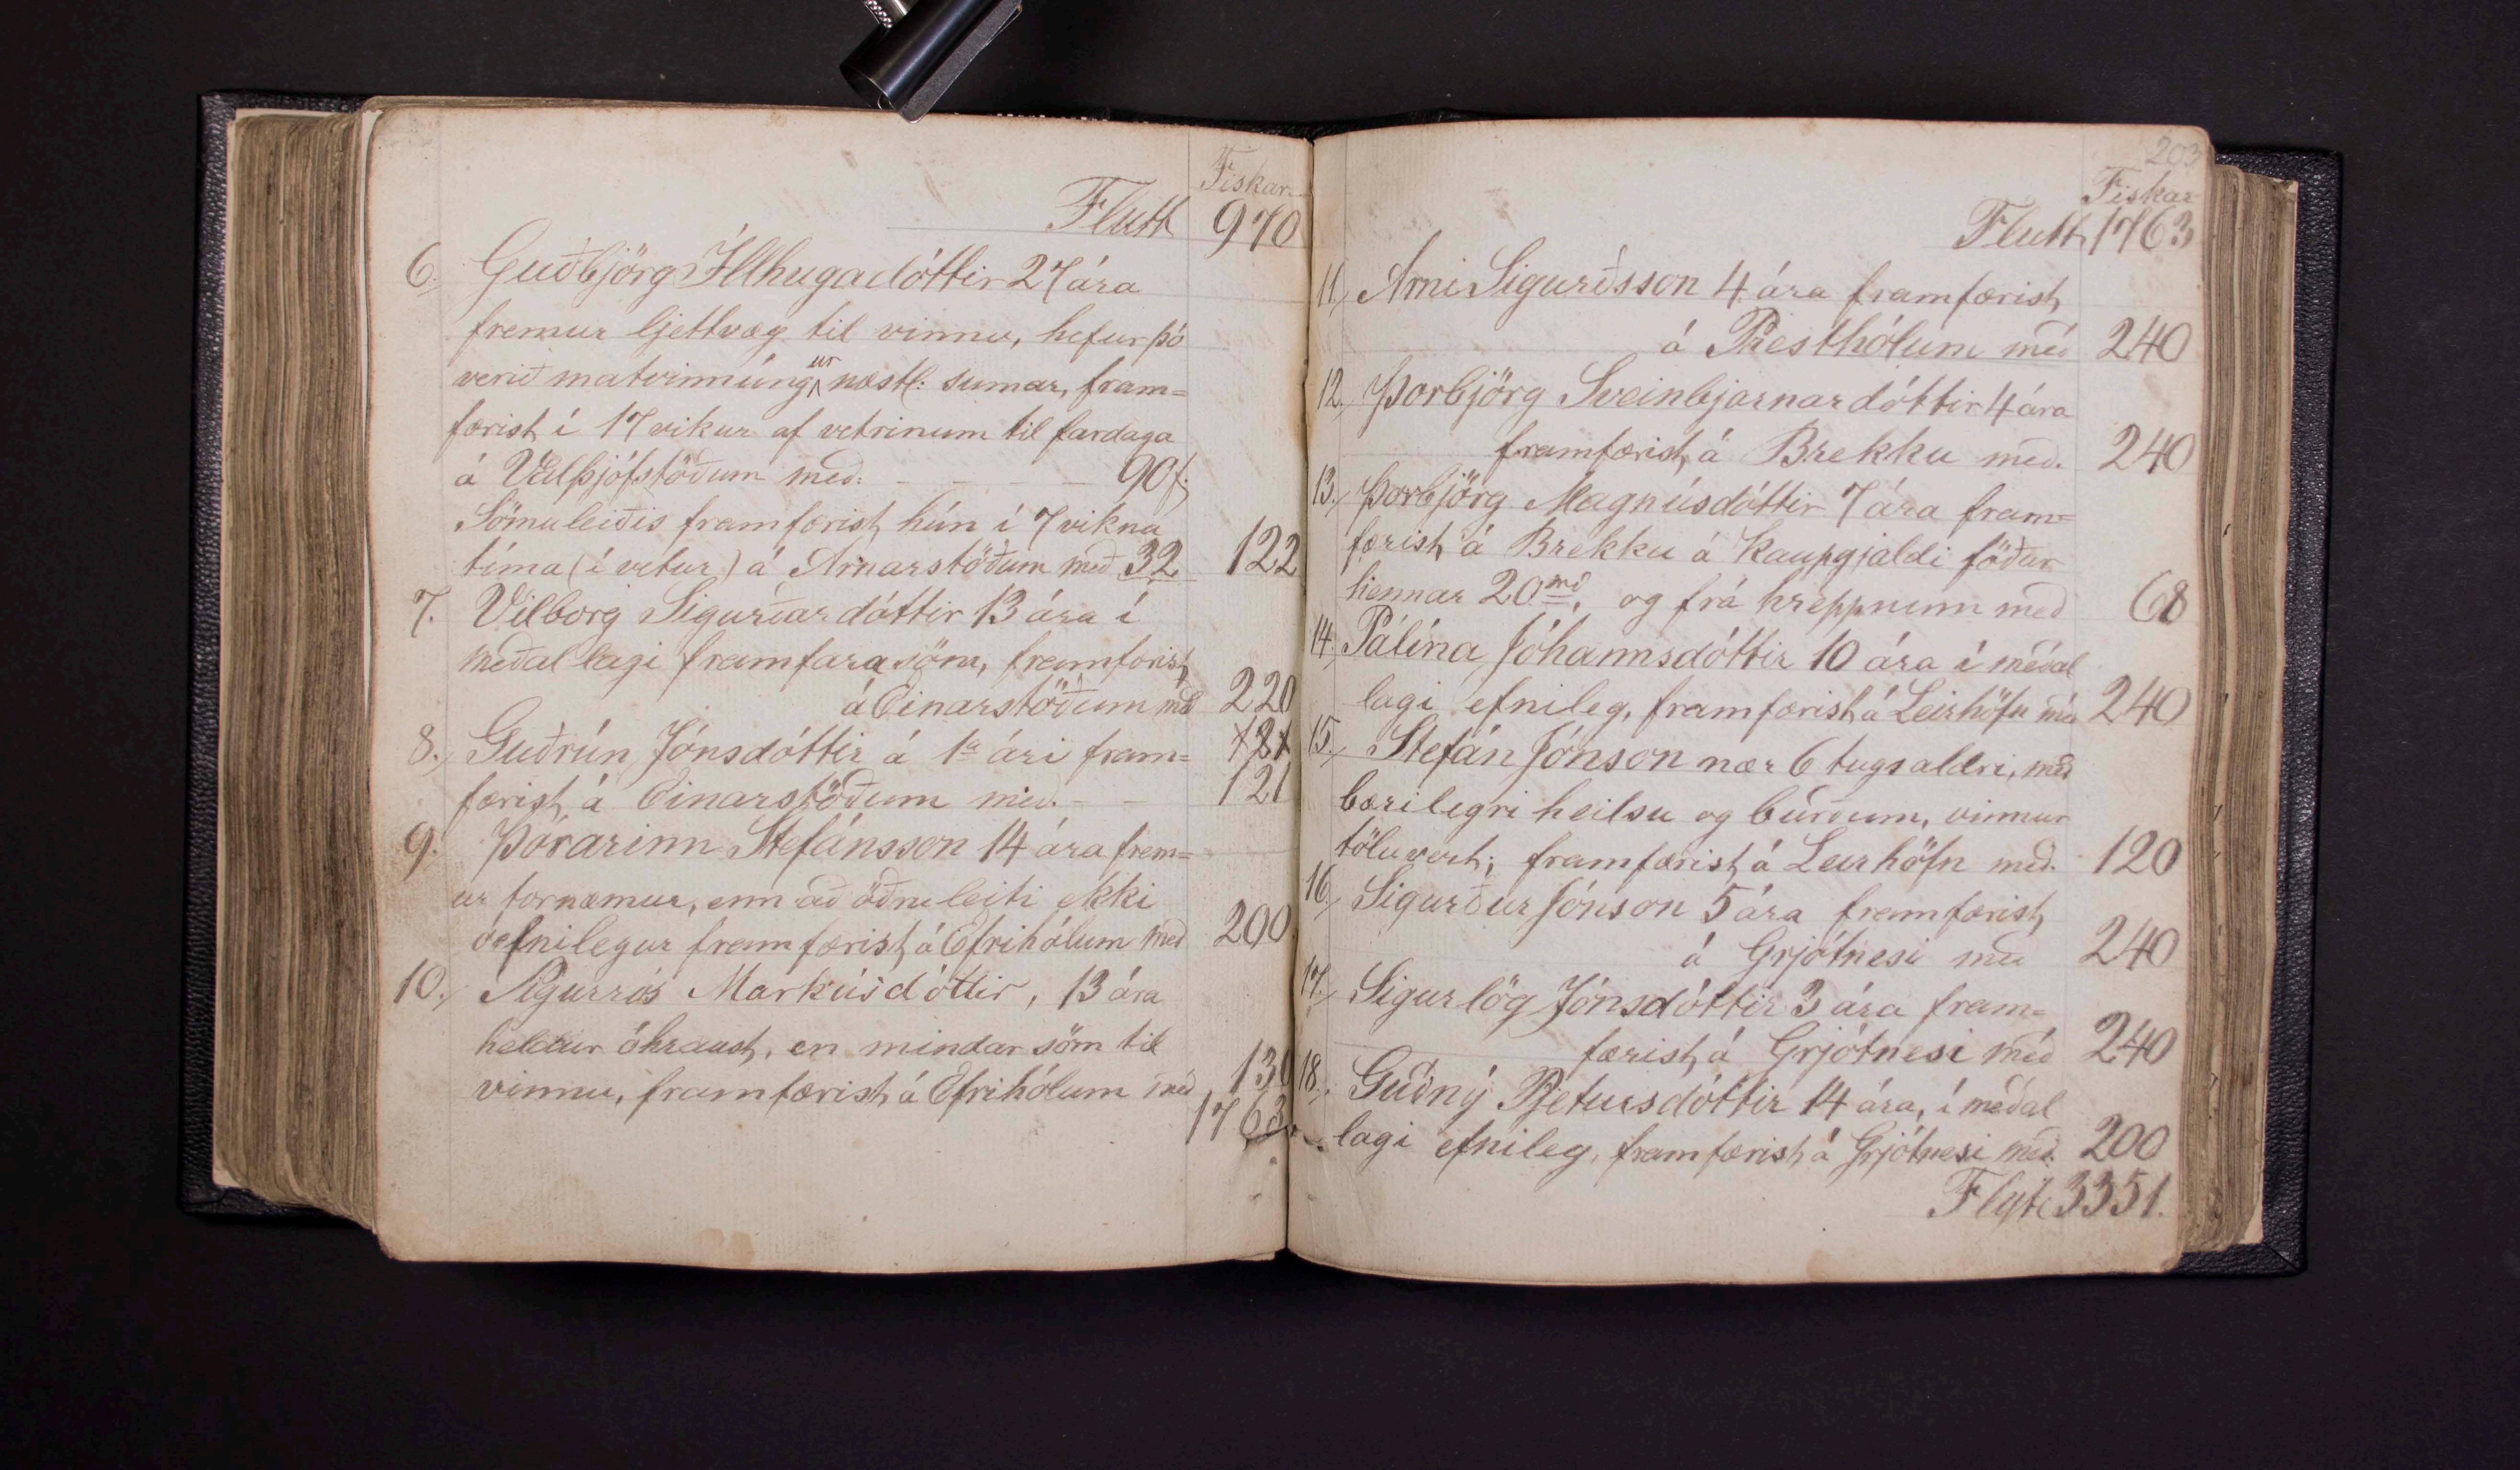 Fiskar
Flutt 970
6. Guðbjörg Illhugadóttir 27 ára
fremur ljettvæg til vinnu, hefur þó
verið matvinnúngur næstl: sumar, fram=
færist í 17 vikur af vetrinum til fardaga
á Valþjófstöðum með: 90 f.
Sömuleiðis framfærist hún í 7 vikna
tíma (í vetur) á Arnarstöðum með 32 122
7. Vilborg Sigurðardóttir 13 ára í
meðal lagi framfarasöm, framfærist
á Einarstöðum með 220
8. Guðrún Jónsdóttir á 1a ári fram=
færist á Einarstöðum með. 121
9. Þórarinn Stefánsson 14 ára frem=
ur tornæmur, enn að öðru leiti ekki
óefnilegur framfærist á Efrihólum með 200
10. Sigurrós Markúsdóttir, 13 ára
heldur óhraust, en mindar söm til
vinnu, framfærist á Efrihólum með 130
1763
203
Fiskar
Flutt 1763
11. Arni Sigurðsson 4 ára framfærist
á Presthólum með 240
12. Þorbjörg Sveinbjarnardóttir 4 ára
framfærist á Brekku með. 240
13. Þorbjörg Magnúsdóttir 7 ára fram=
færist á Brekku á kaupgjaldi föður
hennar 20 og frá hreppnum með 68
14. Pálína Jóhannsdóttir 10 ára í meðal
lagi efnileg, framfærist á Leirhöfn með 240
15. Stefán Jónson nær 6 tugs aldri, með
bærilegri heilsu og búrðum, vinnur
töluvert; framfærist á Leirhöfn með. 120
16. Sigurður Jónson 5 ára framfærist
á Grjótnesi með 240
17. Sigurlög Jónsdóttir 3 ára fram=
færist á Grjótnesi með 240
18. Guðný Pjetursdóttir 14 ára, í meðal
lagi efnileg, framfærist á Grjótnesi með. 200
Flyt 3351.